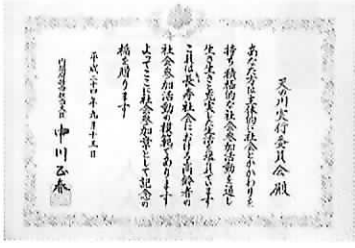 天の川実行委員会殿
あなた方は主体的に社会とかかわりを
持ち積極的な社会参加活動を通し
生き生きと充実した生活を送られています
これは長寿社会における高齢者の
社会参加活動の模範であります
よってここに社会参加章として記念の
楯を贈ります
平成二十四年九月十五日
内閣府特命担当大臣 中川正春